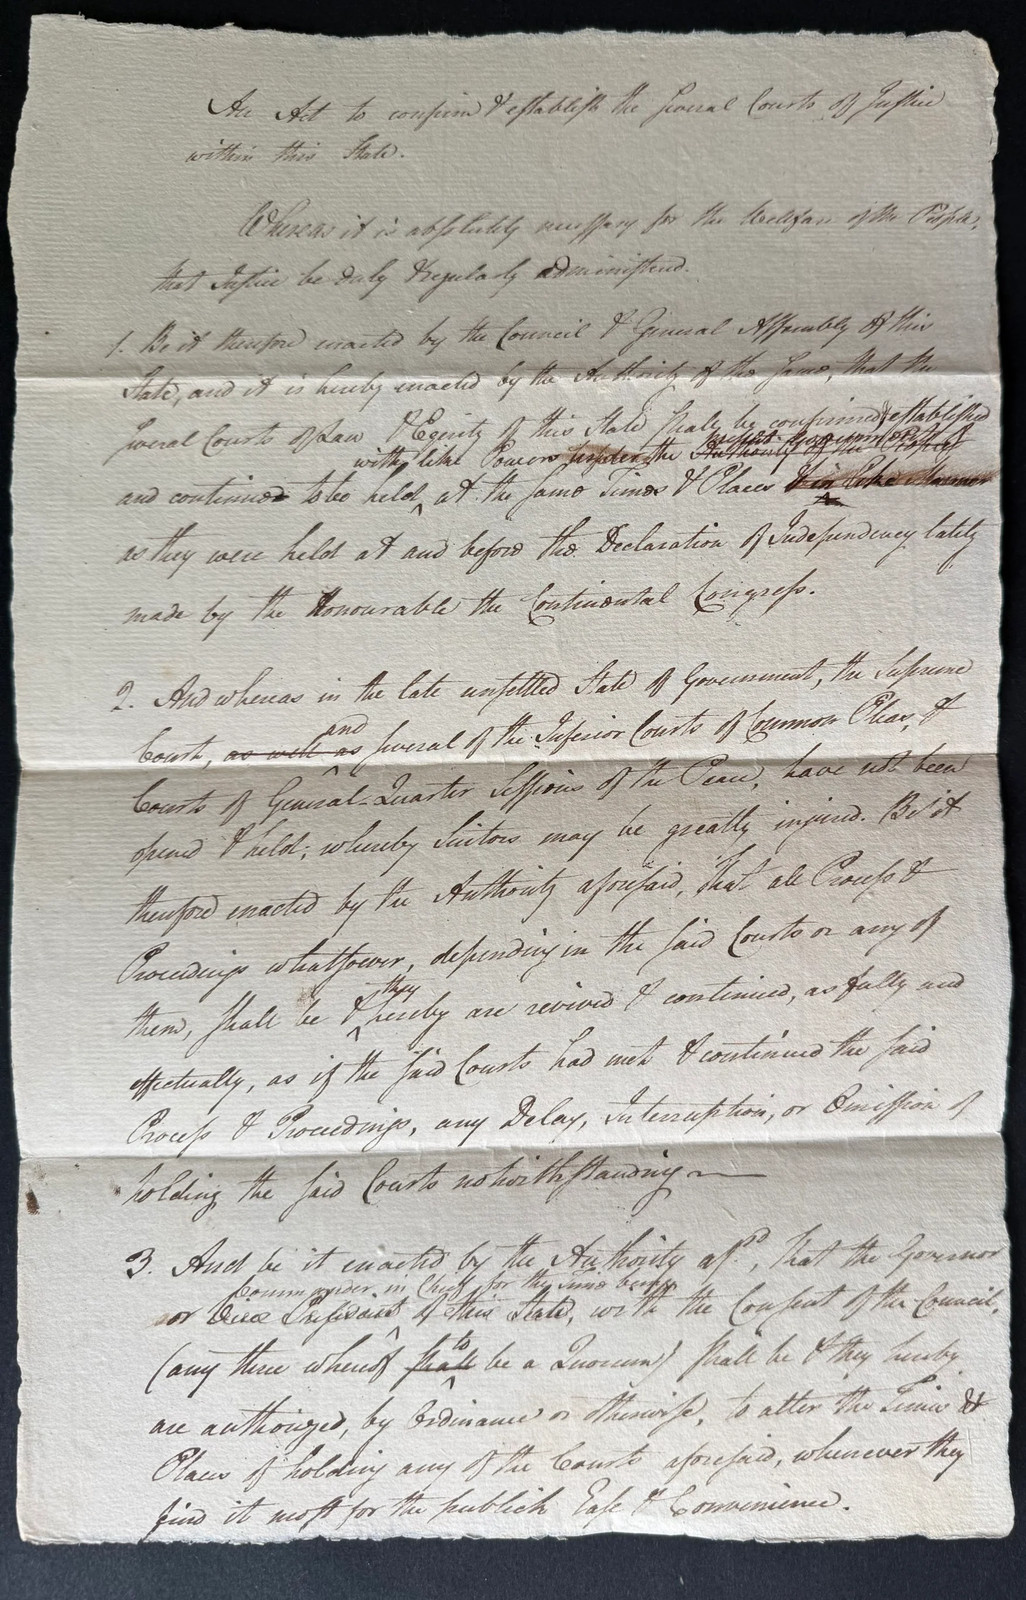 An Act to confirm & establish the several Courts of Justice
within this State.
Whereas it is absolutely necessary for the Wellfare of the People,
that Justice be duly & regularly administered.
1. Be it therefore enacted by the Council & General Assembly of this
State, and it is hereby enacted by the Authority of the same, that the
several Courts of Law & Equity of this State shall be confirmed & established
with like Powers under the Authority of the People
and continued to be held at the same Times & Places & in like Manner
as they were held at and before the Declaration of Independency lately
made by the Honourable the Continental Congress.
2. And whereas in the late unsettled State of Government, the Supreme
and
Court, as well as several of the Inferior Courts of Common Pleas, &
Courts of General-Quarter Sessions of the Peace, have not been
opened & held; whereby Suitors may be greatly injured. Be it
therefore enacted by the Authority aforesaid, That all Process &
Proceedings whatsoever, depending in the said Courts or any of
they
them, shall be & hereby are revived & continued, as fully and
effectually, as if the said Courts had met & continued the said
Process & Proceedings, any Delay, Interruption, or Omission of
holding the said Courts notwithstanding
3. And be it enacted by the Authority afsd, That the Governor
Commander in Chief for the Time being
or Vice President of this State, with the Consent of the Council,
to
(any three whereof shall be a Quorum) shall be & they hereby
are authorized, by Ordinance or otherwise, to alter the Times &
Places of holding any of the Courts aforesaid, whenever they
find it most for the publick Ease & Convenience.